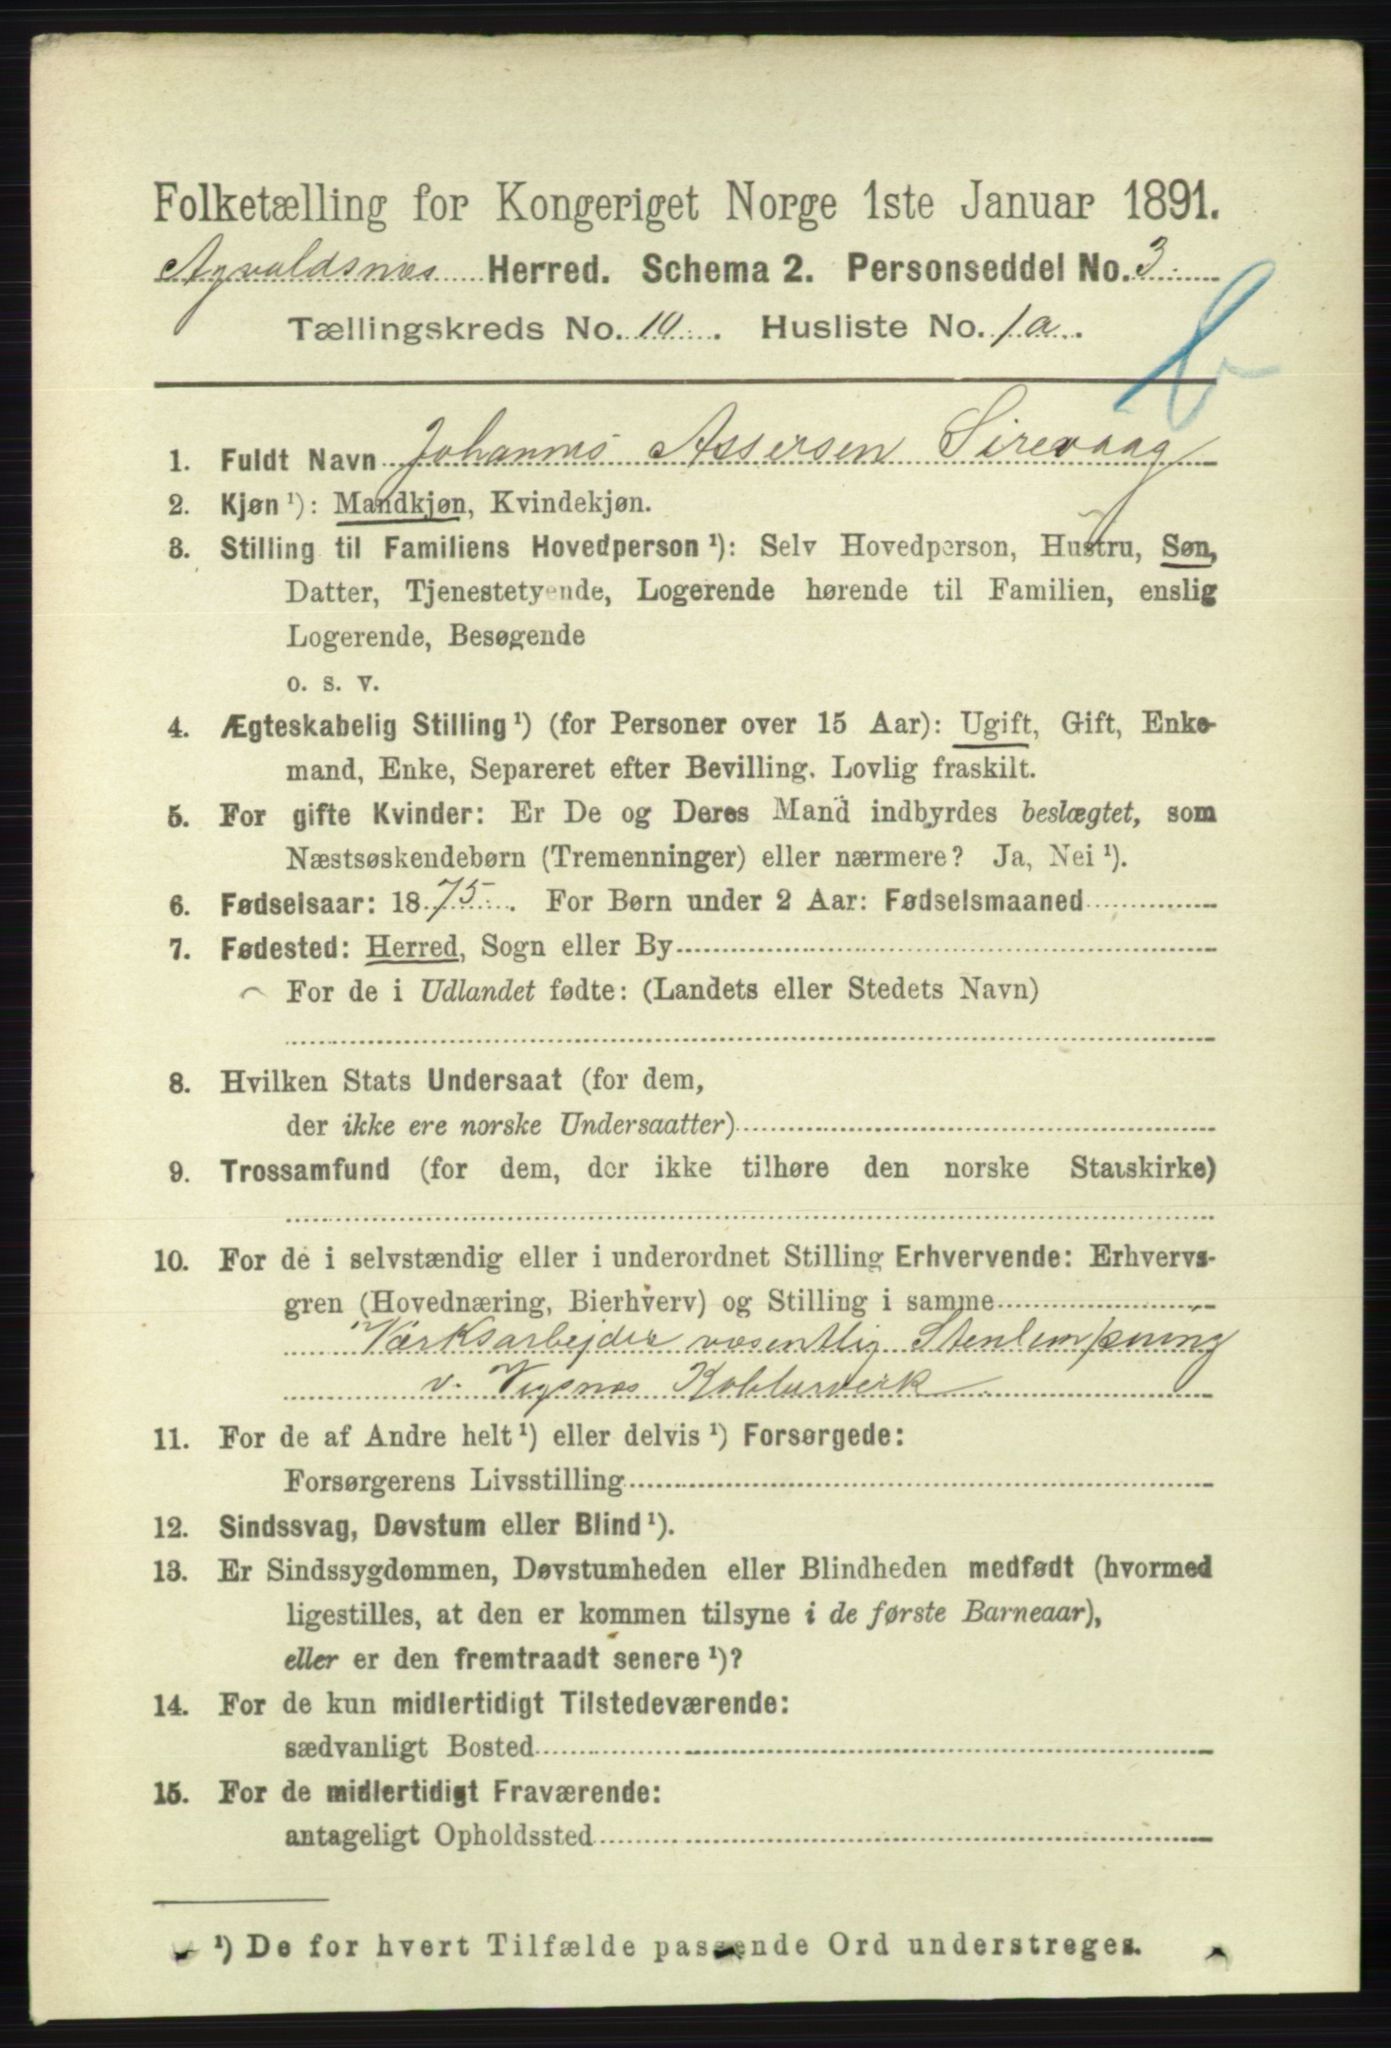 Folketælling for Kongeriget Norge 1ste Januar 1891.
Agvaldsnæs Herred. Schema 2. Personseddel No. 3.
Tællingskreds No. 10. Husliste No. 1a.
1. Fuldt Navn Johannes Assersen Sirevaag
2. Kjøn ¹): Mandkjøn, Kvindekjøn.
3. Stilling til Familiens Hovedperson ¹): Selv Hovedperson, Hustru, Søn,
Datter, Tjenestetyende, Logerende hørende til Familien, enslig
Logerende, Besøgende
o. s. v.
4. Ægteskabelig Stilling ¹) (for Personer over 15 Aar): Ugift, Gift, Enke-
mand, Enke, Separeret efter Bevilling. Lovlig fraskilt.
5. For gifte Kvinder: Er De og Deres Mand indbyrdes beslægtet, som
Næstsøskendebørn (Tremenninger) eller nærmere? Ja, Nei ¹).
6. Fødselsaar: 1875. For Børn under 2 Aar: Fødselsmaaned
7. Fødested: Herred, Sogn eller By
For de i Udlandet fødte: (Landets eller Stedets Navn)
8. Hvilken Stats Undersaat (for dem,
der ikke ere norske Undersaatter)
9. Trossamfund (for dem, der ikke tilhøre den norske Statskirke)
10. For de i selvstændig eller i underordnet Stilling Erhvervende: Erhvervs-
gren (Hovednæring, Bierhverv) og Stilling i samme
Værksarbejder væsentlig
v. Vigsnæs Kobberverk
11. For de af Andre helt ¹) eller delvis ¹) Forsørgede:
Forsørgerens Livsstilling
12. Sindssvag, Døvstum eller Blind ¹).
13. Er Sindssygdommen, Døvstumheden eller Blindheden medfødt (hvormed
ligestilles, at den er kommen tilsyne i de første Barneaar),
eller er den fremtraadt senere ¹)?
14. For de kun midlertidigt Tilstedeværende:
sædvanligt Bosted
15. For de midlertidigt Fraværende:
antageligt Opholdssted
¹) De for hvert Tilfælde passende Ord understreges.